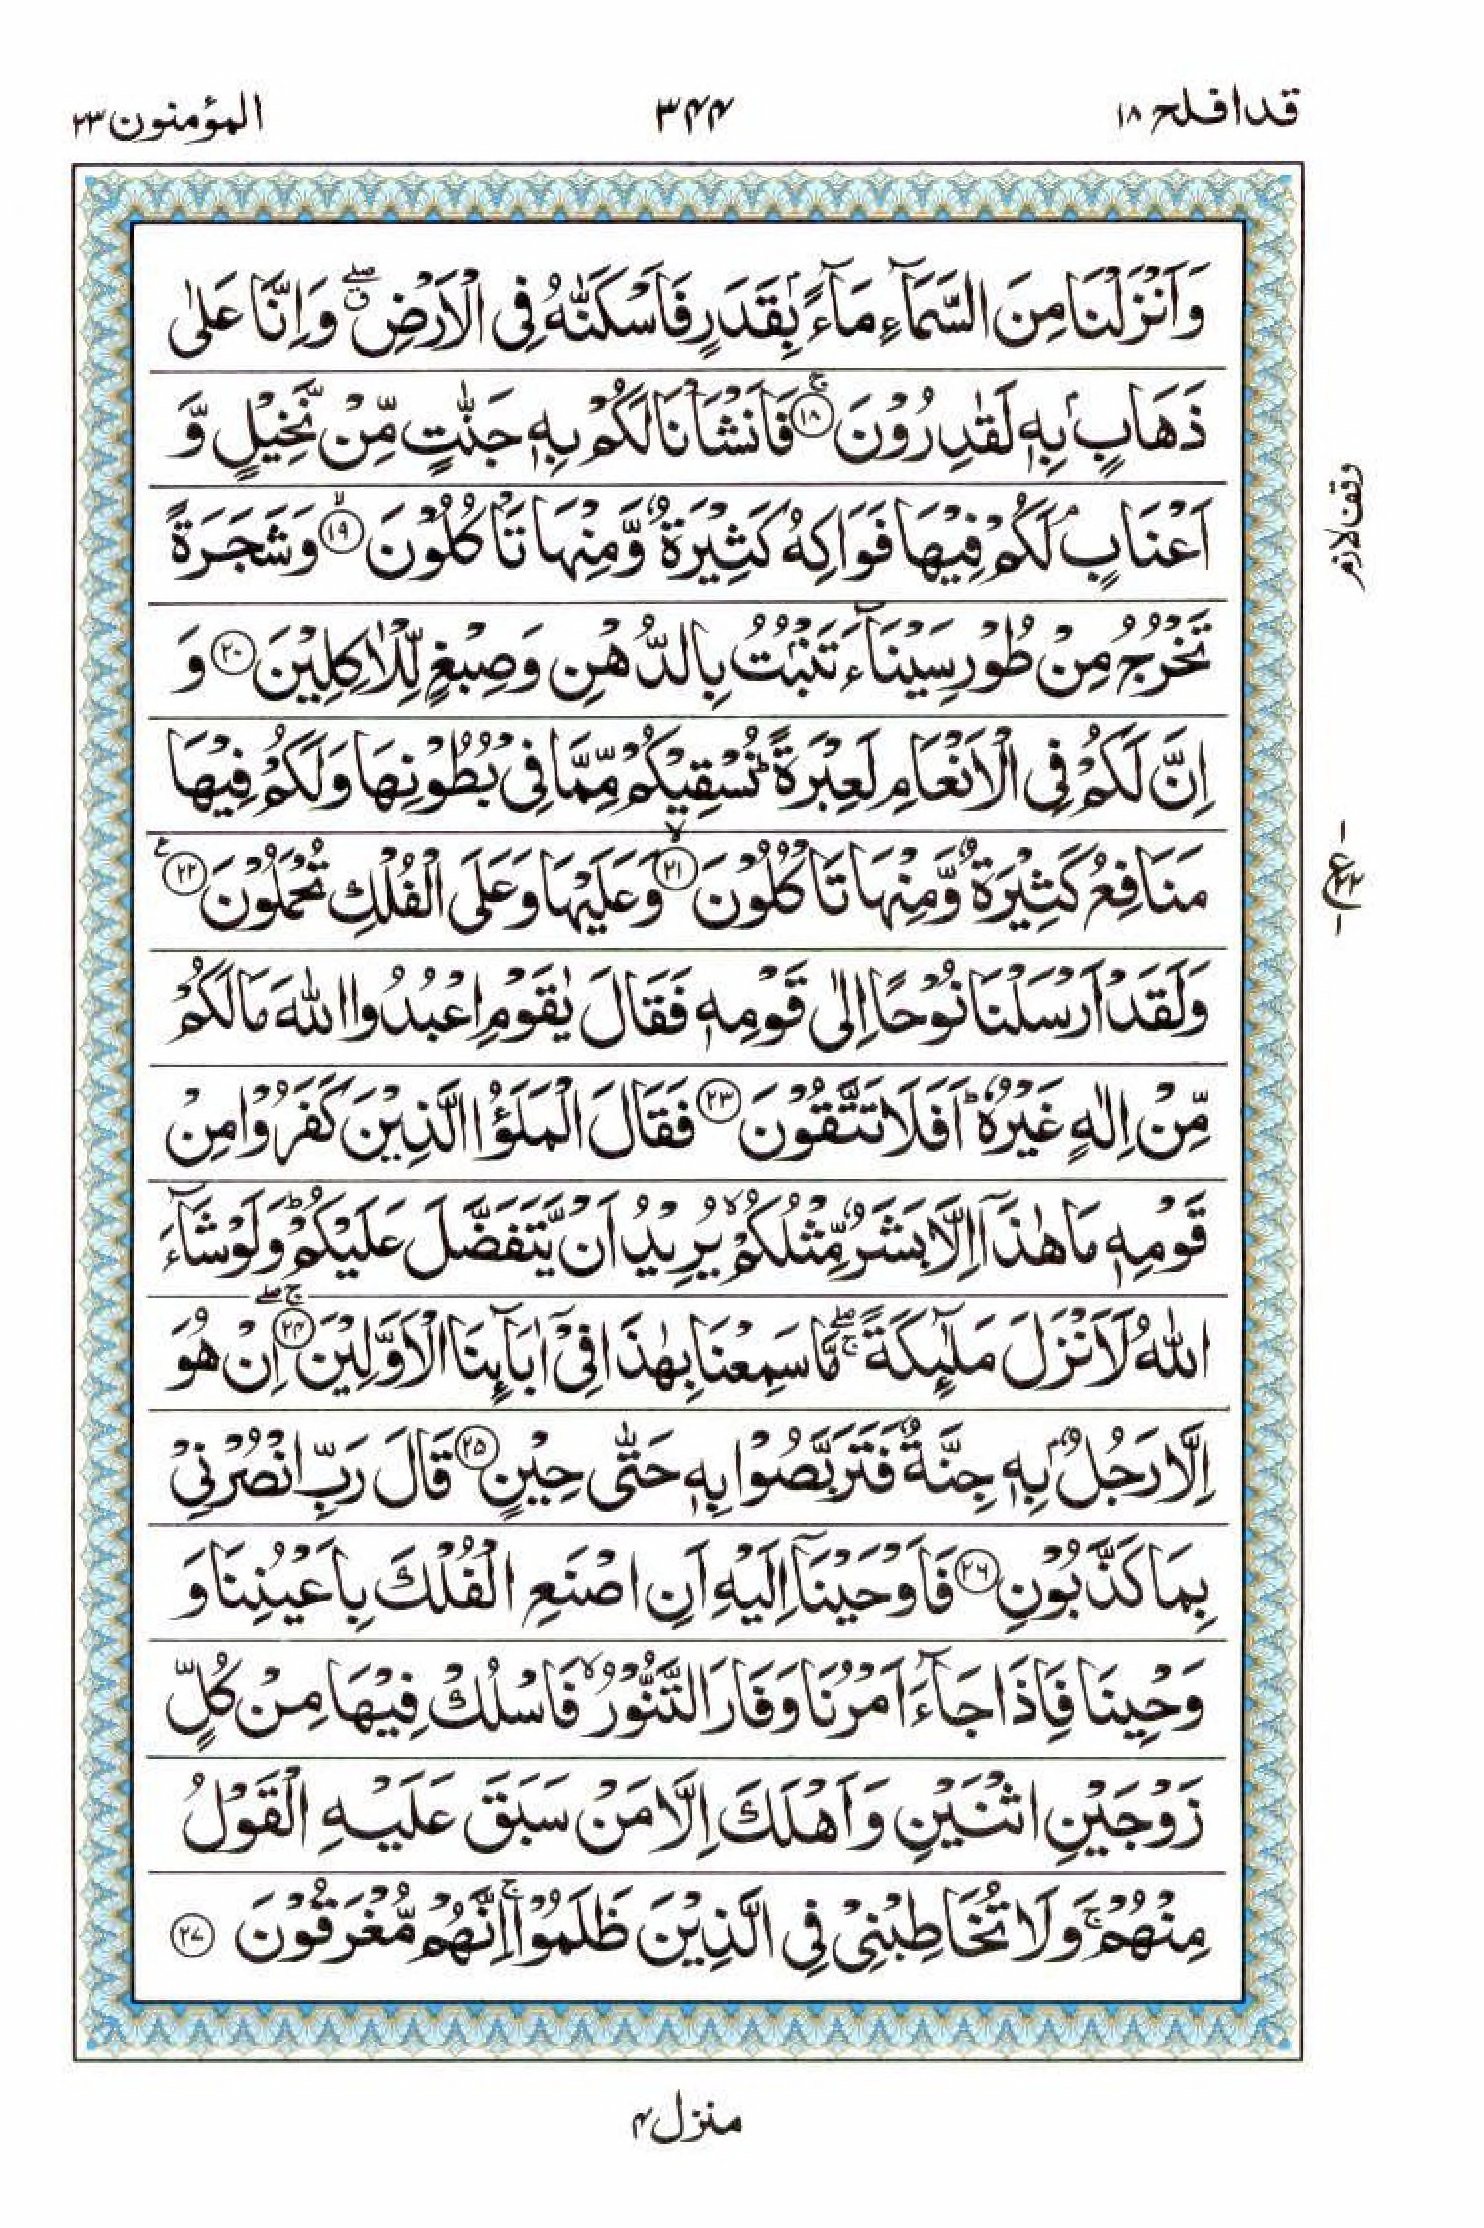 المؤمنون ٢٣ ٣٤٤ قد افلح ١٨
وَاَنْزَلْنَا مِنَ السَّمَآءِ مَآءًۢ بِقَدَرٍ فَاَسْكَنّٰهُ فِی الْاَرْضِ ۖۗ وَاِنَّا عَلٰی
ذَهَابٍۭ بِهٖ لَقٰدِرُوْنَ ۚ﴿۱۸﴾ فَاَنْشَاْنَا لَكُمْ بِهٖ جَنّٰتٍ مِّنْ نَّخِیْلٍ وَّ
اَعْنَابٍ ۘ لَكُمْ فِیْهَا فَوَاكِهُ كَثِیْرَةٌ وَّمِنْهَا تَاْكُلُوْنَ ۙ﴿۱۹﴾ وَشَجَرَةً
تَخْرُجُ مِنْ طُوْرِ سَیْنَآءَ تَنْۢبُتُ بِالدُّهْنِ وَصِبْغٍ لِّلْاٰكِلِیْنَ ﴿۲۰﴾ وَ
اِنَّ لَكُمْ فِی الْاَنْعَامِ لَعِبْرَةً ؕ نُسْقِیْكُمْ مِّمَّا فِیْ بُطُوْنِهَا وَلَكُمْ فِیْهَا
مَنَافِعُ كَثِیْرَةٌ وَّمِنْهَا تَاْكُلُوْنَ ۙ﴿۲۱﴾ وَعَلَیْهَا وَعَلَی الْفُلْكِ تُحْمَلُوْنَ ﴿۲۲﴾ ع
وَلَقَدْ اَرْسَلْنَا نُوْحًا اِلٰی قَوْمِهٖ فَقَالَ یٰقَوْمِ اعْبُدُوا اللّٰهَ مَا لَكُمْ
مِّنْ اِلٰهٍ غَیْرُهٗ ؕ اَفَلَا تَتَّقُوْنَ ﴿۲۳﴾ فَقَالَ الْمَلَؤُا الَّذِیْنَ كَفَرُوْا مِنْ
قَوْمِهٖ مَا هٰذَاۤ اِلَّا بَشَرٌ مِّثْلُكُمْ ۙ یُرِیْدُ اَنْ یَّتَفَضَّلَ عَلَیْكُمْ ؕ وَلَوْ شَآءَ
اللّٰهُ لَاَنْزَلَ مَلٰٓئِكَةً ۚۖ مَّا سَمِعْنَا بِهٰذَا فِیْۤ اٰبَآئِنَا الْاَوَّلِیْنَ ۚۖ﴿۲۴﴾ اِنْ هُوَ
اِلَّا رَجُلٌۢ بِهٖ جِنَّةٌ فَتَرَبَّصُوْا بِهٖ حَتّٰی حِیْنٍ ﴿۲۵﴾ قَالَ رَبِّ انْصُرْنِیْ
بِمَا كَذَّبُوْنِ ﴿۲۶﴾ فَاَوْحَیْنَاۤ اِلَیْهِ اَنِ اصْنَعِ الْفُلْكَ بِاَعْیُنِنَا وَ
وَحْیِنَا فَاِذَا جَآءَ اَمْرُنَا وَفَارَ التَّنُّوْرُ ۙ فَاسْلُكْ فِیْهَا مِنْ كُلٍّ
زَوْجَیْنِ اثْنَیْنِ وَاَهْلَكَ اِلَّا مَنْ سَبَقَ عَلَیْهِ الْقَوْلُ
مِنْهُمْ ۚ وَلَا تُخَاطِبْنِیْ فِی الَّذِیْنَ ظَلَمُوْا ۚ اِنَّهُمْ مُّغْرَقُوْنَ ﴿۲۷﴾
وقف لازم
منزل ۴